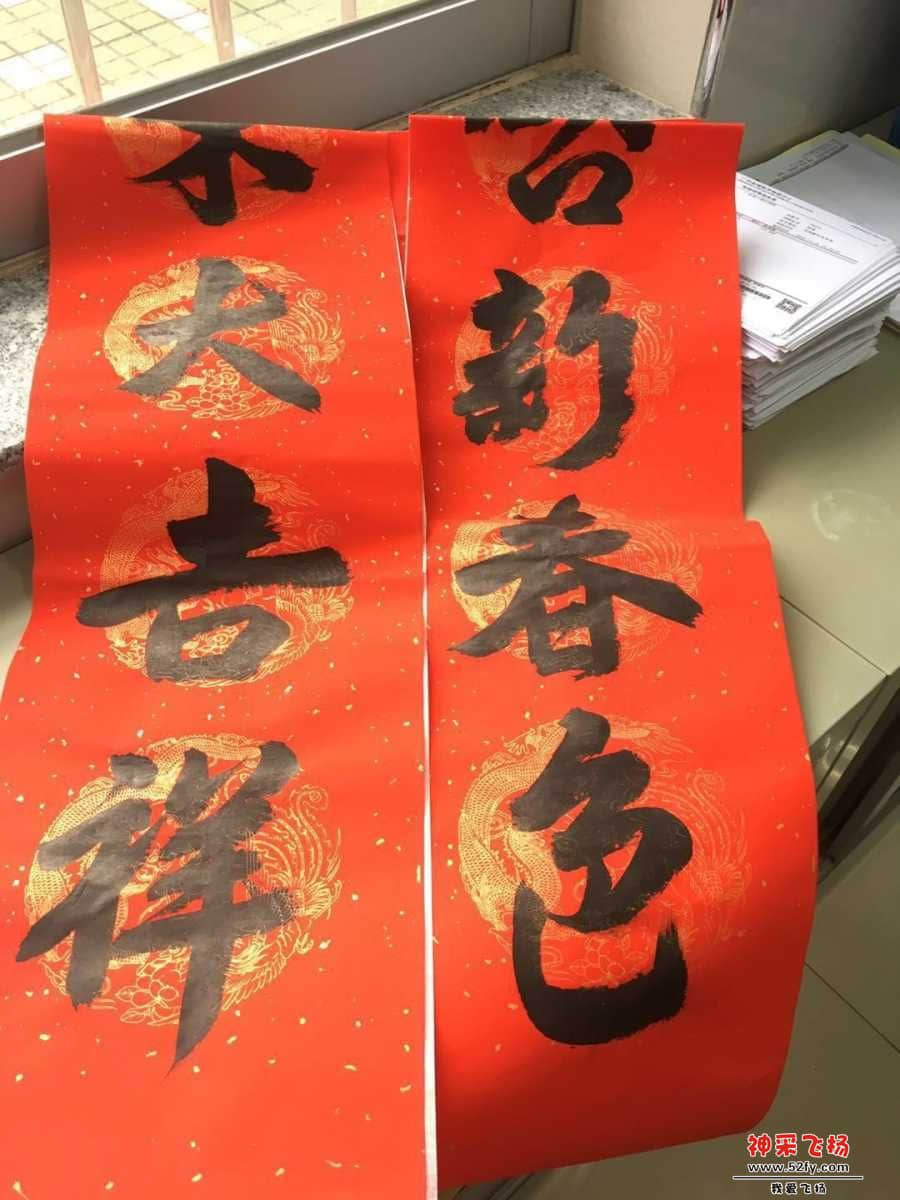 新春色
大吉祥
神采飞扬
www.52fy.com
我爱飞扬